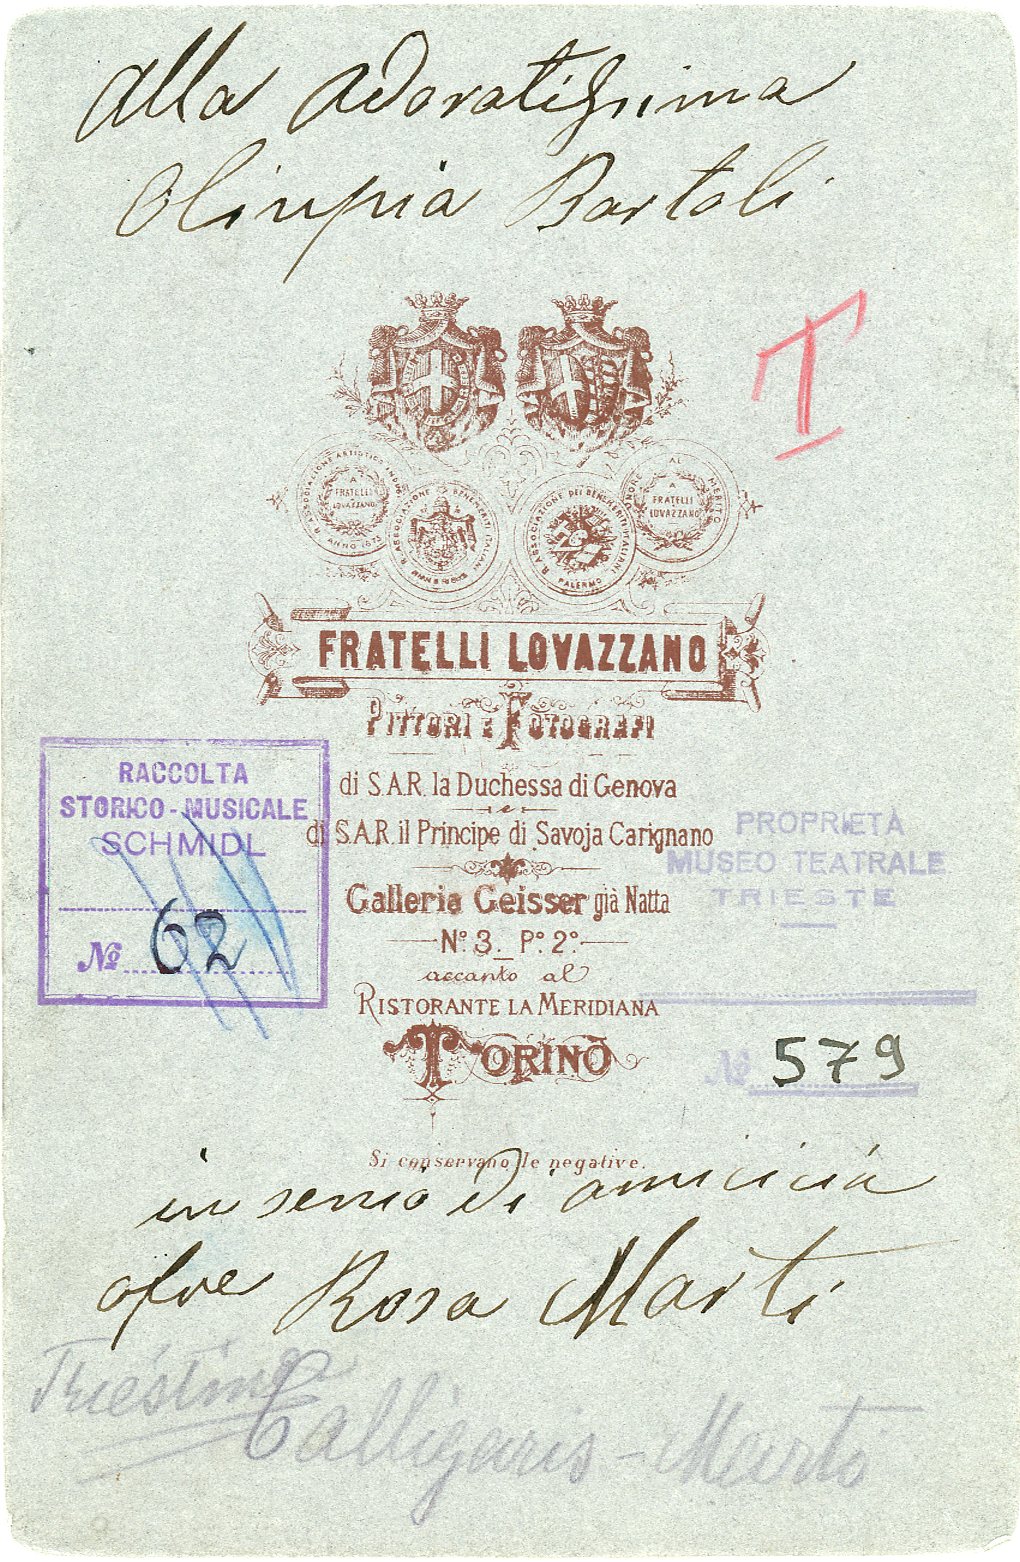 Alla Adoratissima
Olinpia Bartoli
T
R. ASSOCIAZIONE ARTISTICI INDUS
A
FRATELLI
LOVAZZANO
ANNO 1873
R. ASSOCIAZIONE BENEMERITI ITALIANI
R. ASSOCIAZIONE DEI BENEMERITI ITALIANI
PALERMO
ONORE AL MERITO
A
FRATELLI
LOVAZZANO
FRATELLI LOVAZZANO
PITTORI E FOTOGRAFI
di S.A.R. la Duchessa di Genova
di S.A.R. il Principe di Savoja Carignano
Galleria Geisser già Natta
N.º 3. P.º 2.º
accanto al
RISTORANTE LA MERIDIANA
TORINO
RACCOLTA
STORICO-MUSICALE
SCHMIDL
Nº 62
PROPRIETÀ
MUSEO TEATRALE
TRIESTE
Nº 579
Si conservano le negative.
in senio di amicicia
ofre Rosa Marti
Triestina
Calligaris-Marti